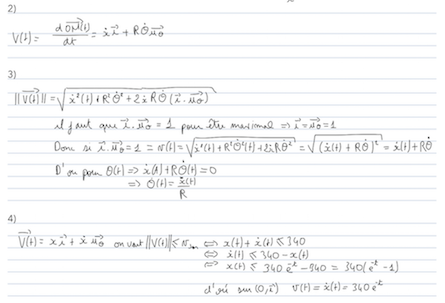 2)
V(t) = d OM(t) / dt = ẋ i⃗ + R θ̇ u⃗θ
3)
||V(t)|| = √(ẋ²(t) + R² θ̇² + 2 ẋ R θ̇ (i⃗ . u⃗θ))
il faut que i⃗ . u⃗θ = 1 pour être maximal ⇒ i⃗ = u⃗θ = 1
Donc si i⃗ . u⃗θ = 1 = v(t) = √(ẋ²(t) + R² θ̇²(t) + 2ẋRθ̇²) = √((ẋ(t) + Rθ̇)²) = ẋ(t) + Rθ̇
D'où pour θ(t) ⇒ ẋ(t) + Rθ̇(t) = 0
⇒ θ̇(t) = ẋ(t) / R
4)
V(t) = x i⃗ + ẋ u⃗θ on veut ||V(t)|| ≤ ⇔ x(t) + ẋ(t) ≤ 340
⇔ ẋ(t) ≤ 340 - x(t)
⇔ x(t) ≤ 340 e^-t - 340 = 340(e^-t - 1)
d'où sur (0, i⃗) v(t) = ẋ(t) = 340 e^-t